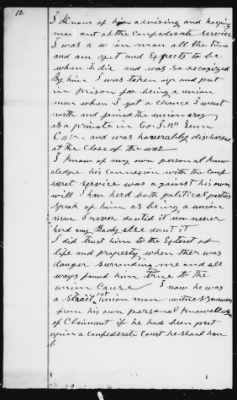 12
I Know of him advising and keeping
men out of the Confederate service
I was a union man all the time
and am yet and Expects to be
when I die and was so recognized
By him I was taken up and put
in prison for being a union
man when I got a chance I went
north and joined the union army
as a private in Co. I. 12" Tenn
Calv. and was honerably discharged
at the close of the war
I know of my own personal know
sledge his connesion with the Conf
secret service was a against his own
will I have herd both political parties
speak of him as being a union
man I never douted it nor never
herd any Body else dout it
I did trust him to the Extent of
life and property when ther was
danger surrounding me and all
ways found him true to the
union Cause I now he was
a strait out union man witness knows
from his own personal knowelledg
of Claimant if he had been put
upon a Confederate Court he should have